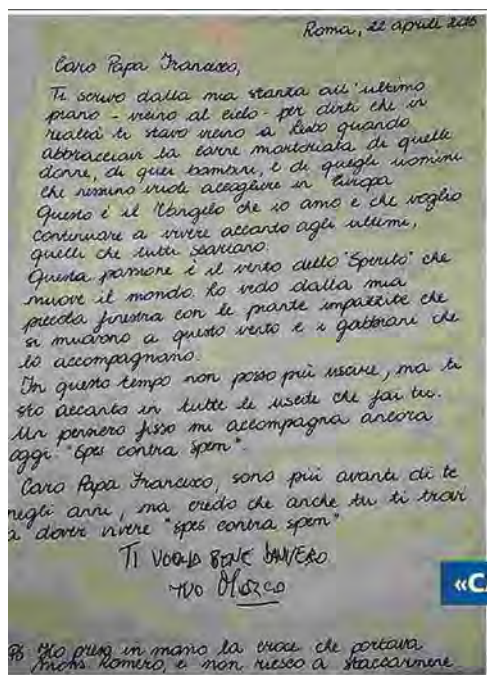 Roma, 22 aprile 2016
Caro Papa Francesco,
Ti scrivo dalla mia stanza all'ultimo
piano - vicino al cielo - per dirti che in
realtà ti stavo vicino a Lesbo quando
abbracciavi la carne martoriata di quelle
donne, di quei bambini, e di quegli uomini
che nessuno vuole accogliere in Europa
Questo è il Vangelo che io amo e che voglio
continuare a vivere accanto agli ultimi,
quelli che tutti scartano.
Questa passione è il vento dello "Spirito" che
muove il mondo. Lo vedo dalla mia
piccola finestra con le piante impazzite che
si muovono a questo vento e i gabbiani che
lo accompagnano.
In questo tempo non posso più uscire, ma ti
sto accanto in tutte le uscite che fai tu.
Un pensiero fisso mi accompagna ancora
oggi: "Spes contra Spem".
Caro Papa Francesco, sono più avanti di te
negli anni, ma credo che anche tu ti trovi
a dover vivere "spes contra spem"
TI VOGLIO BENE DAVVERO
TUO Marco
PS Ho preso in mano la croce che portava
mons Romero, e non riesco a staccarmene